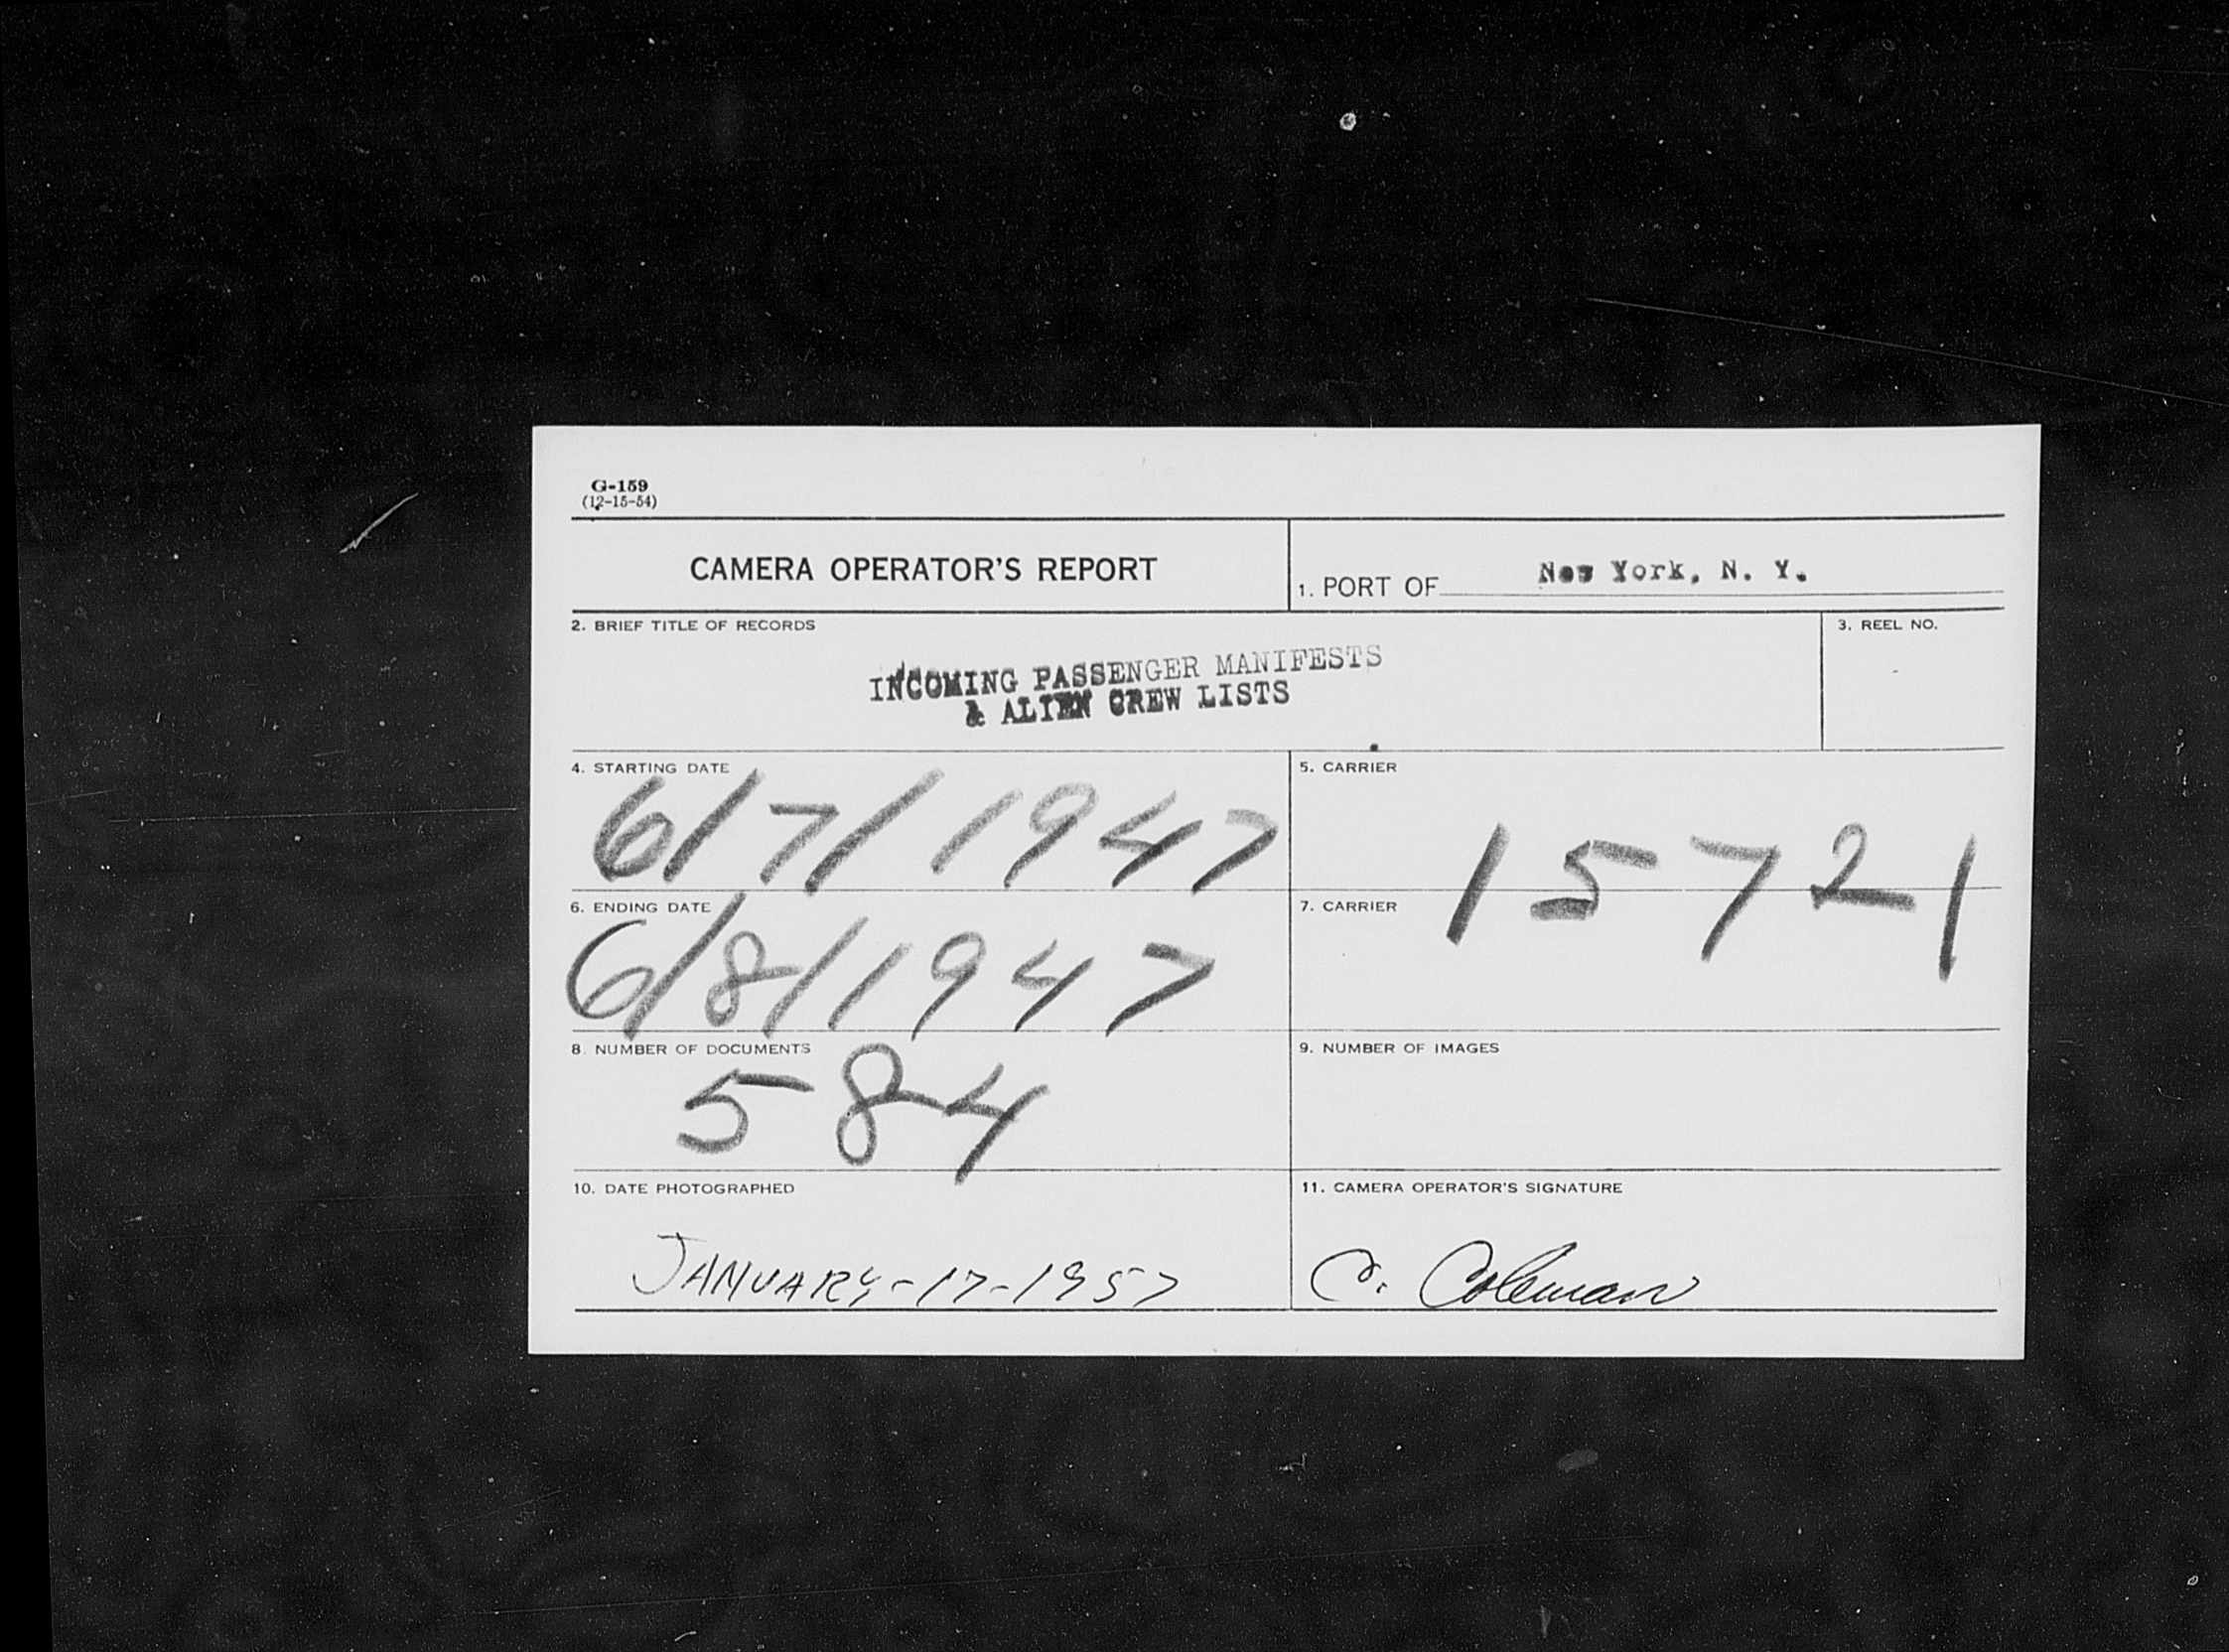 G-159
(12-15-54)
CAMERA OPERATOR'S REPORT
1. PORT OF New York, N. Y.
2. BRIEF TITLE OF RECORDS
3. REEL NO.
INCOMING PASSENGER MANIFESTS
& ALIEN CREW LISTS
4. STARTING DATE
6/7/1947
5. CARRIER
15721
6. ENDING DATE
6/8/1947
7. CARRIER
8. NUMBER OF DOCUMENTS
584
9. NUMBER OF IMAGES
10. DATE PHOTOGRAPHED
JANUARY-17-1957
11. CAMERA OPERATOR'S SIGNATURE
C. Coleman